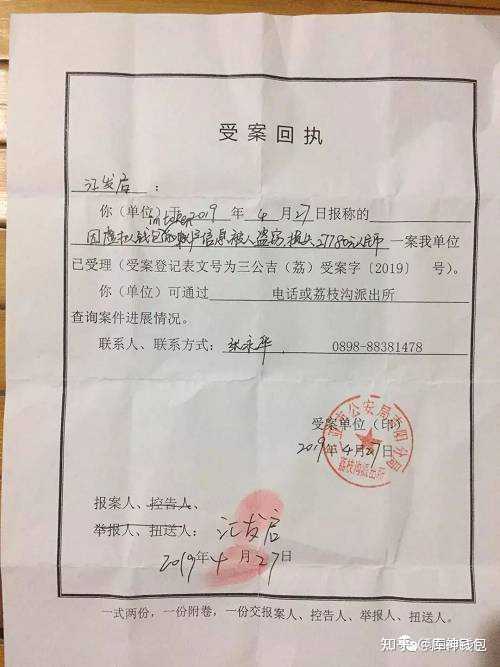 受案回执
汪发启 :
你（单位）于 2019 年 4 月 27 日报称的
imtoken
因虚拟钱包的数字信息被人盗窃,损失27780元人民币 一案我单位
已受理（受案登记表文号为三公吉（荔）受案字〔2019〕 号）。
你（单位）可通过 电话或荔枝沟派出所
查询案件进展情况。
联系人、联系方式： 张永华 0898-88381478
受案单位（印）
2019年4月27日
三亚市公安局吉阳分局
荔枝沟派出所
报案人、控告人、
举报人、扭送人： 汪发启
2019年4月27日
一式两份，一份附卷，一份交报案人、控告人、举报人、扭送人。
知乎 @库神钱包